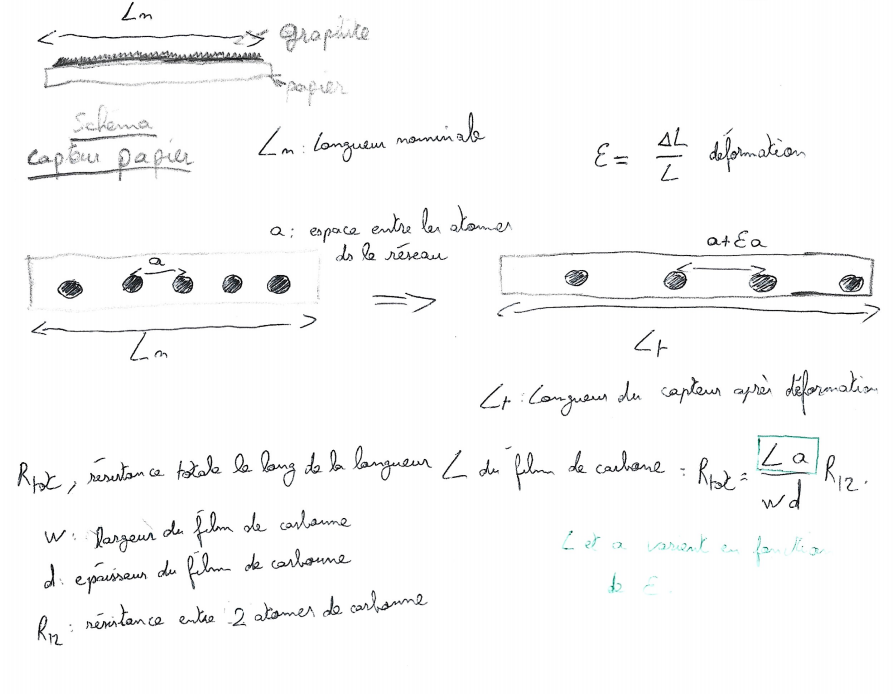 Ln
graphite
papier
Schéma
capteur papier
Ln : longueur nominale
ε = ΔL / L déformation
a : espace entre les atomes
ds le réseau
a
a + εa
Ln
Lf
Lf : longueur du capteur après déformation
Rtot, résistance totale le long de la longueur L du film de carbone : Rtot = L a / w d R12.
w : largeur du film de carbonne
d : épaisseur du film de carbonne
R12 : résistance entre 2 atomes de carbonne
L et a varient en fonction
de ε.